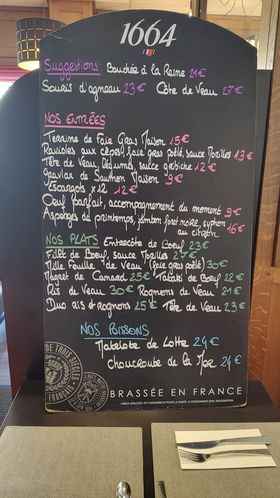 1664
Suggestions Bouchée à la Reine 21€
Souris d'agneau 23€ Côte de Veau 27€
NOS ENTRÉES
Terrine de Foie Gras Maison 15€
Ravioles aux cèpes, foie gras poêlé, sauce Morilles 13€
Tête de Veau, légumes, sauce gribiche 12€
Gravlax de Saumon Maison 9€
Escargots x12 12€
Oeuf parfait, accompagnement du moment 9€
Asperges de printemps, jambon forêt noire, syphon 16€
au citron
NOS PLATS Entrecôte de Boeuf 23€
Filet de Boeuf, sauce Morilles 27€
Mille Feuille de Veau (foie gras poêlé) 30€
Magret de Canard 25€ Tataki de Boeuf 22€
Ris de Veau 30€ Rognons de Veau 21€
Duo ris et rognons 25€ Tête de Veau 23€
NOS POISSONS
Matelote de Lotte 24€
Choucroute de la Mer 24€
BRASSÉE EN FRANCE